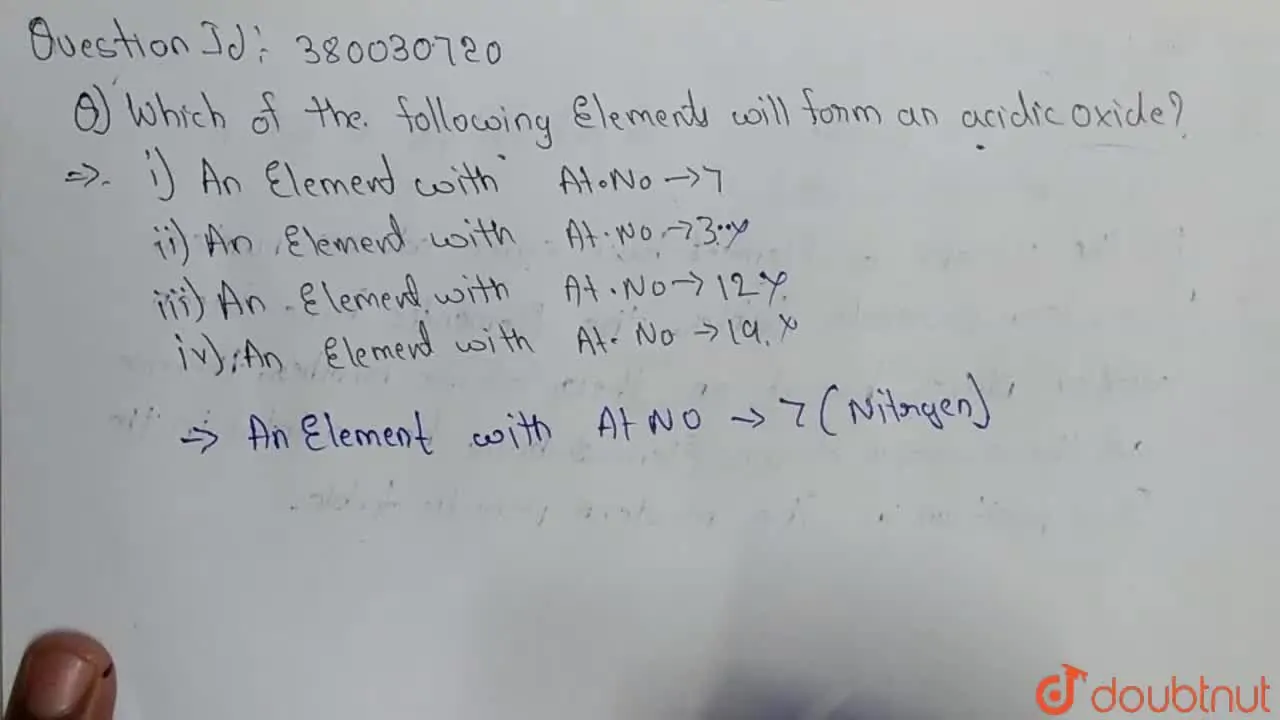 Question Id: 380030720
Q) Which of the following Elements will form an acidic oxide?
⇒ i) An Element with At.No → 7
ii) An Element with At.No → 3 x
iii) An Element with At.No → 12 x
iv) An Element with At.No → 19 x
⇒ An Element with At NO → 7 (Nitrogen)
doubtnut